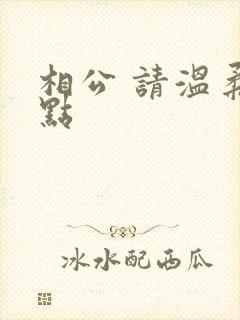 相公 請溫柔
點
冰水配西瓜